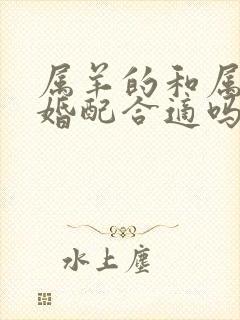 属羊的和属
婚配合适吗
水上尘